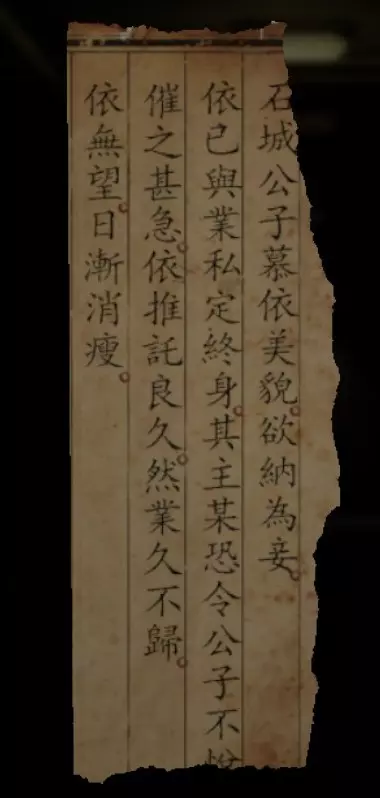 石城公子慕依美貌。欲納為妾。
依已與業私定終身。其主某恐令公子不悅
催之甚急。依推託良久。然業久不歸。
依無望。日漸消瘦。